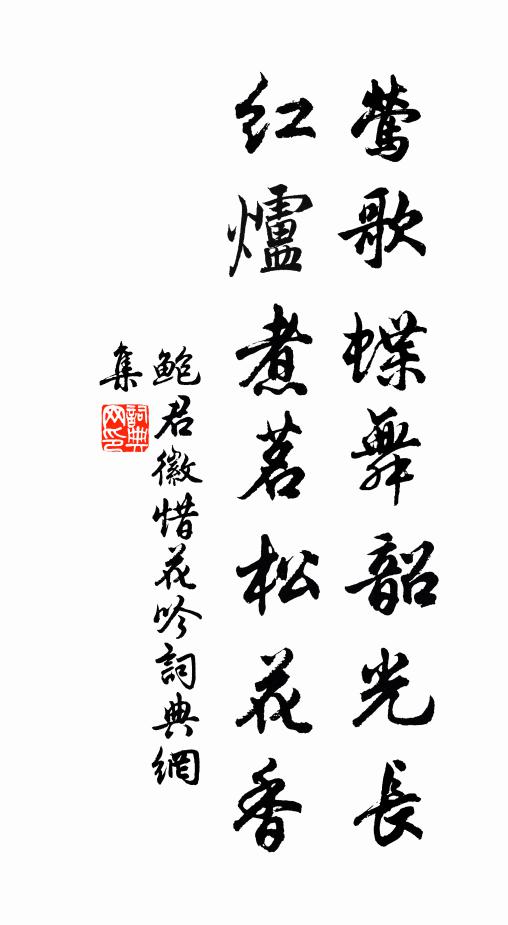 鶯歌蝶舞韶光長
紅爐煮茗松花香
鮑君徽惜花吟詞典網
集
詞典
网印